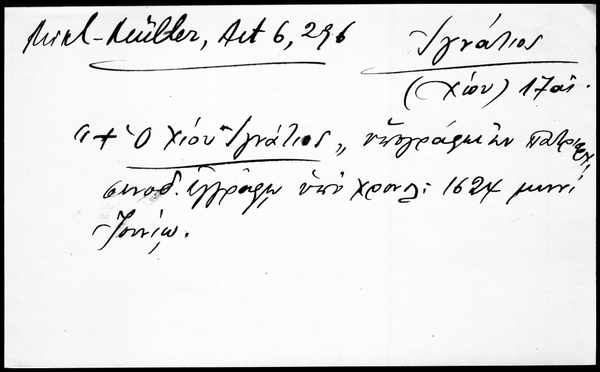 Mikl-Müller, Act 6, 296
Ἰγνάτιος
(Χίου) 17 αἰ.
"+ Ὁ Χίου Ἰγνάτιος„ ὑπογράφων ἐν πατριαρχ.
συνοδ. ἐγγράφῳ ὑπὸ χρονολ: 1624 μηνὶ
Ἰουνίῳ.